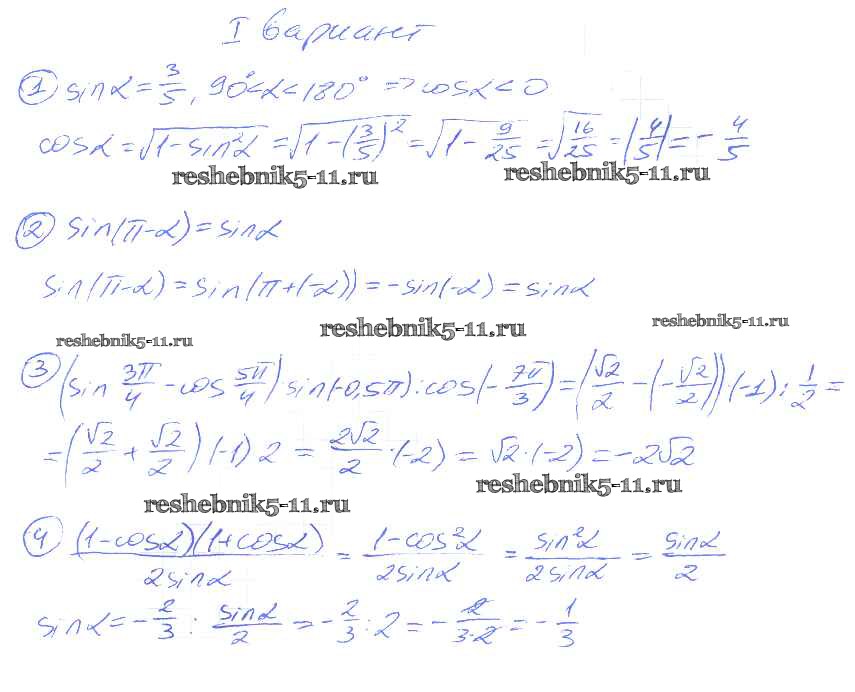 I вариант
① sinα = 3/5, 90°<α<180° ⇒ cosα<0
cosα = √(1-sin²α) = √(1-(3/5)²) = √(1-9/25) = √(16/25) = |4/5| = -4/5
reshebnik5-11.ru reshebnik5-11.ru
② sin(π-α) = sinα
sin(π-α) = sin(π+(-α)) = -sin(-α) = sinα
reshebnik5-11.ru reshebnik5-11.ru reshebnik5-11.ru
③ (sin 3π/4 - cos 5π/4) sin(-0,5π) : cos(-7π/3) = (√2/2 - (-√2/2)) (-1) : 1/2 =
= (√2/2 + √2/2) (-1) 2 = 2√2/2 · (-2) = √2 · (-2) = -2√2
reshebnik5-11.ru reshebnik5-11.ru
④ (1-cosα)(1+cosα)/2sinα = 1-cos²α/2sinα = sin²α/2sinα = sinα/2
sinα = -2/3 : sinα/2 = -2/3 : 2 = -2/3·2 = -1/3